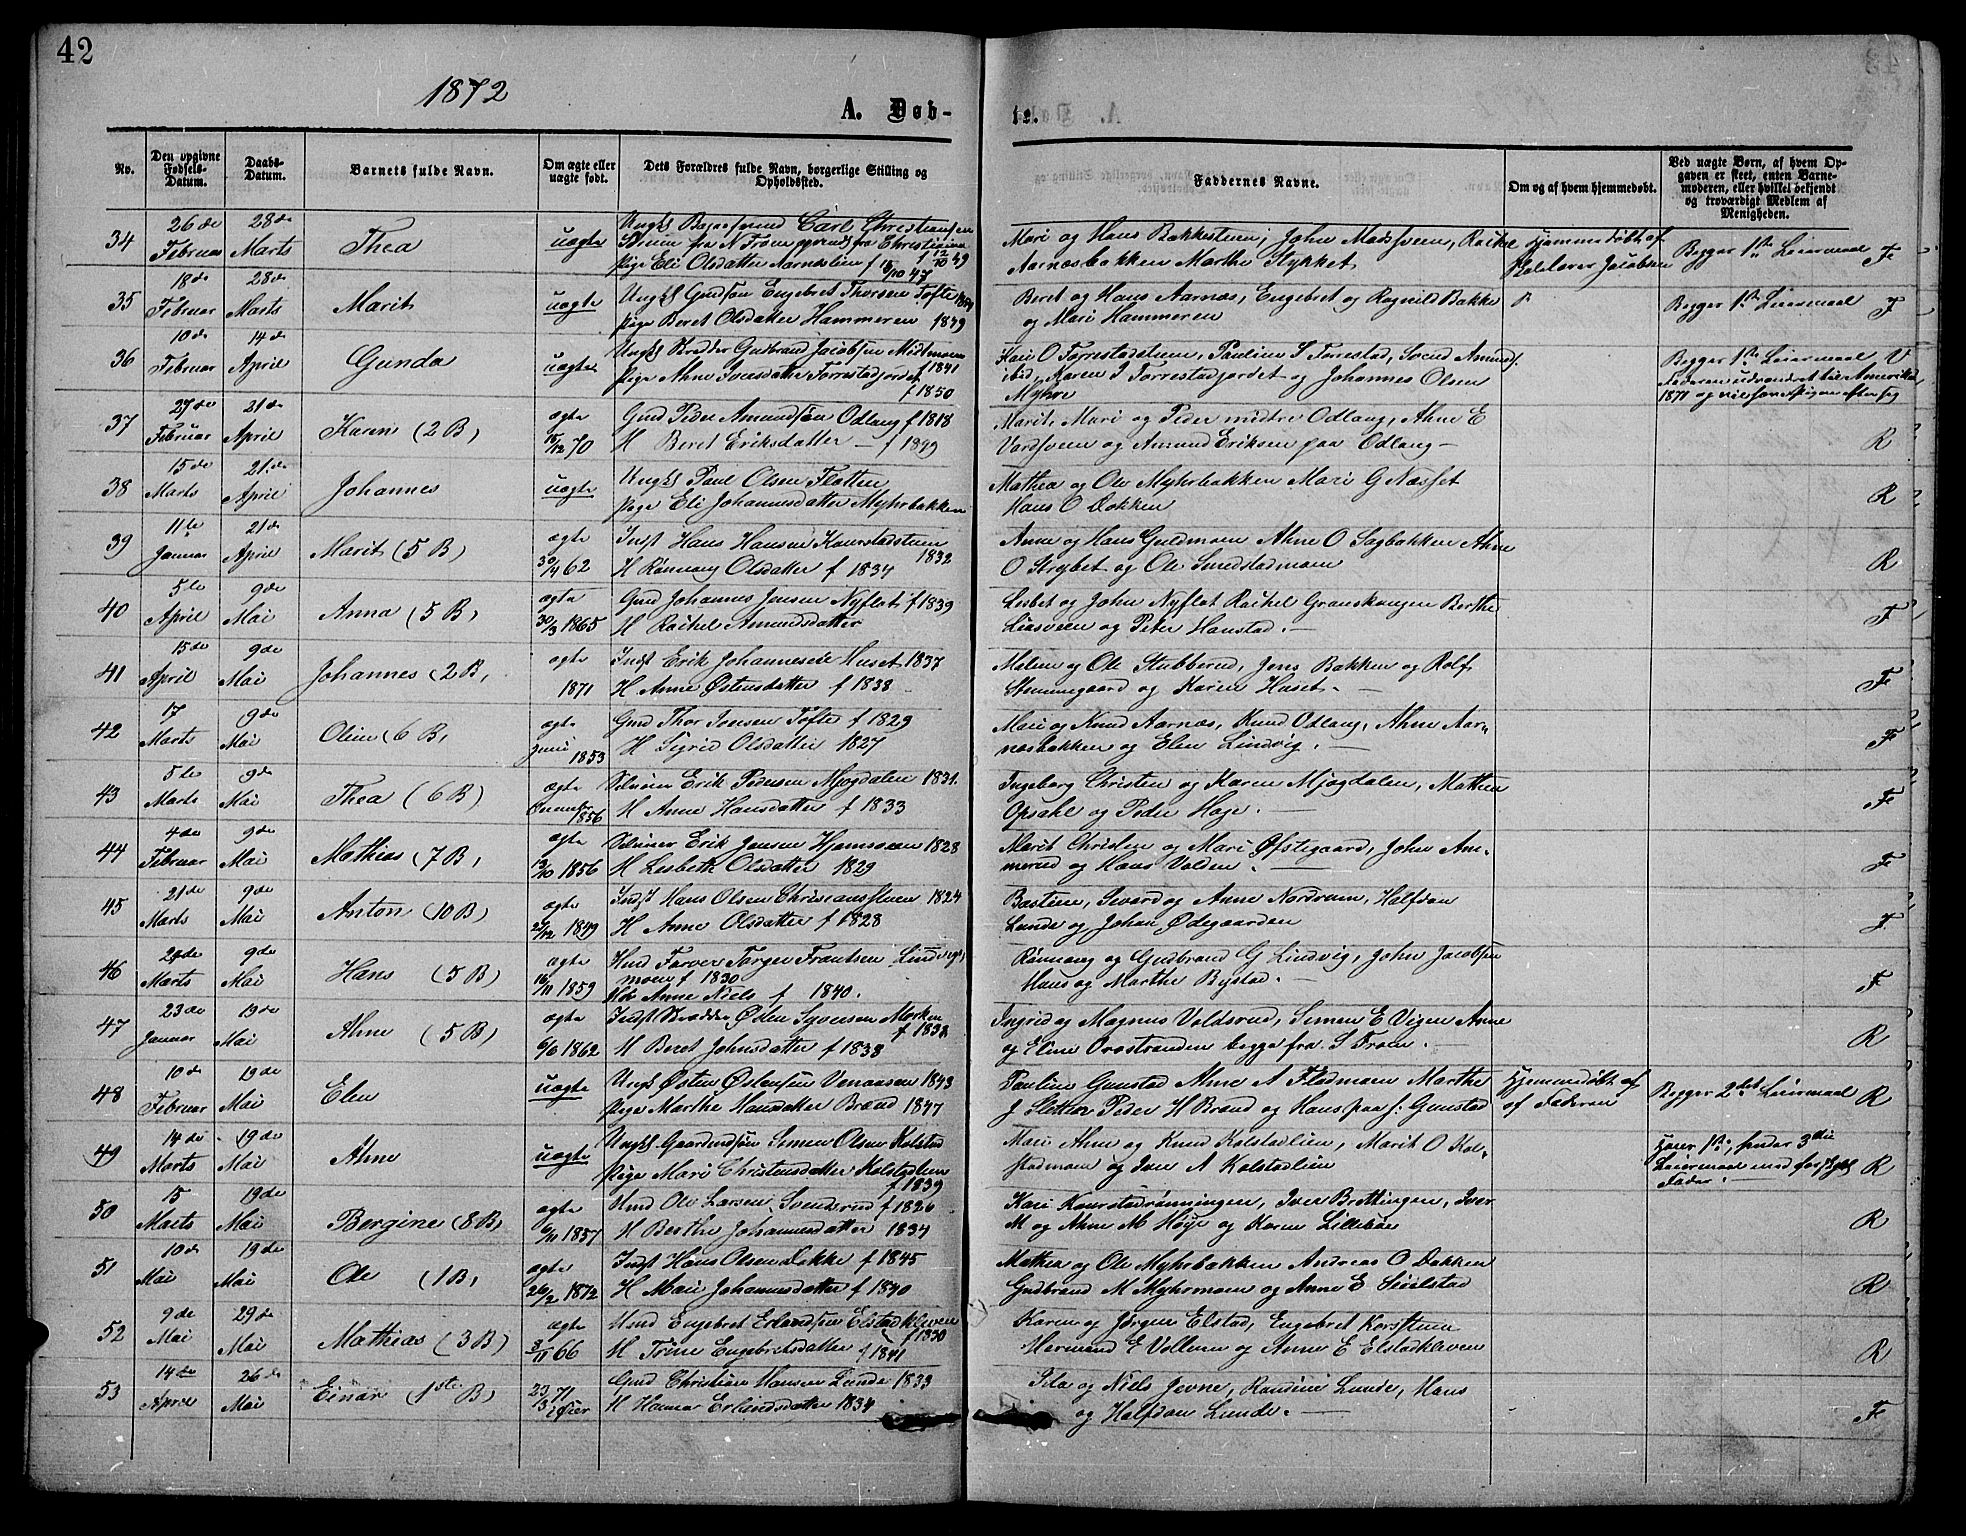 42
1872
A. Døb-
te.
No.
Den opgivne Fødsels-Datum.
Daabs-Datum.
Barnets fulde Navn.
Om ægte eller uægte født.
Dets Forældres fulde Navn, borgerlige Stilling og Opholdssted.
Faddernes Navne.
Om og af hvem hjemmedøbt.
Ved uægte Børn, af hvem Opgaven er skeet, enten Barnemoderen, eller hvilket bekjendt og troværdigt Medlem af Menigheden.
34 26de Februar 28de Marts Thea uægte
Carl Christiansen
fra N Fron fra Christiania
Pige Eli Olsdatter Aarnæslien f 15/10 47
Mari og Hans Bakkesteen, John Madssveen,
Aarnæsbakken Marthe Stykket
Hjemmedøbt af Jacobsen
Begges 1ste Leiermaal F
35 18de Februar 28de Marts Marit uægte
Ungk Gmdsøn Engebret Thorsen Tofte
Pige Beret Olsdatter Hammeren 1849
Beret og Hans Aarnæs, Engebret og Ragnild Bakke
og Mari Hammeren
Begges 1ste Leiermaal F
36 10de Februar 14de April Gunda uægte
Ungk Skredder Gudbrand Jacobsen Midtmoen f 1841
Pige Ahne Iversdatter Torrestadjordet f 1850
Kari O Torrestadsteen, Pauline S Torrestad, Svend Amunds.
ibid, Karen I Torrestadjordet og Johannes Olsen
Myhre
Begges 1ste Leiermaal V
Faderen udvandret til Amerika
1871 og vil have Pigen efter sig
37 27de Februar 21de April Karen (2 B) ægte 15/12 70
Gmd Peder Amundsøn Odlaug f 1818
H Beret Eriksdatter — f 1849
Marit, Mari og Peder midtre Odlaug, Ahne E
Vardsveen og Amund Eriksen paa Odlaug — R
38 15de Marts 21de April Johannes uægte
Ungk Paul Olsen Flatten
Pige Eli Johannesdatter Myhrbakken
Mathea og Ole Myhrbakken Mari G Næsset
Hans O Dokken R
39 11te Januar 21de April Marit (5 B) ægte 30/4 62
Indst Hans Hansen Kanstadsteen 1832
H Rønnaug Olsdatter f 1834
Anne og Hans Guldmoen Ahne O Sagbakken Ahne
O Strybet og Ole Smedstadmoen R
40 5te April 9de Mai Anna (5 B) ægte 30/3 1865
Gmd Johannes Jensen Nyflot f 1839
H Rachel Amundsdatter
Lisbet og John Nyflot Rachel Granskaugen Berthe
Liesveen og Peter Hanstad. — F
41 15de April 9de Mai Johannes (2 B) ægte 1871
Indst Erik Johannesen Huset 1837
H Anne Østensdatter f 1838
Malene og Ole Stubberud, Jens Bakken og Rolf
Stemmegaard og Karen Huset. — F
42 17 Marts 9de Mai Oline (6 B) ægte Juni 1853
Gmd Thor Jonsen Tofte f 1829
H Sigrid Olsdatter 1827
Mari og Knud Aarnæs, Knud Odlaug, Ahne Aar-
næsbakken og Elen Lindvig. — F
43 5te Marts 9de Mai Thea (6 B) ægte 1856
Selveier Erik Pedersen Mjogdalen 1831
H Anne Hansdatter f 1833
Ingeborg Christen og Karen Mjogdalen, Mathea
Opsahl og Peder Hage. F
44 4de Februar 9de Mai Mathias (7 B) ægte 12/10 1856
Selveier Erik Jensen 1828
H Lisbeth Olsdatter 1829
Marit Christen og Mari Øfstegaard, John Am-
merud og Hans Volden. — F
45 21de Marts 9de Mai Anton (10 B) ægte 27/12 1849
Indst Hans Olsen Christianssteen 1824
H Anne Olsdatter f 1828
Bastian, Sivard og Anne Nordrum, Halfdan
Lunde og Johan Ødegaarden F
46 Marts 9de Mai Hans (5 B) ægte 16/11 1859
Hmd Farver Torger Frantsen Lindvigs
moen f 1830
Anne Niels f 1840.
Rønnaug og Gudbrand G Lindvig, John Jacobsen
Hans og Marthe Bystad. — F
47 23de Januar 19de Mai Ahne (5 B) ægte 6/6 1862
Indst Skredder Øden Syversen Morken f 1832
H Beret Johnsdatter f 1838
Ingrid og Magnus Voldsrud, Simen E Vigen Anne
og Eline Orastranden begge fra S Fron. — R
48 10de Februar 19de Mai Elen uægte
Ungk Østen Østensen Venaasen 1843
Pige Marthe Hansdatter Brand 1847
Pauline Gunstad Ahne A Flodmoen Marthe
J Sletten Peder H Brand og Hans paa s. Gunstad
Hjemmedøbt af
af Faderen
Begges 2det Leiermaal R
49 14de Marts 19de Mai Ahne uægte
Ungk Gaardmdsøn Simen Olsen Kolstad
Pige Mari Christensdatter Kolstadlien f 1839
Mari Ahne og Knud Kolstadlien, Marit O Kol-
stadmoen og Iver A Kolstadlien
1ste, hendes 3die
Leiermaal med forskjel
Fader. — R
50 15 Marts 19de Mai Bergine (8 B) ægte 6/11 1857
Hmd Ole Larsen Svendsrud f 1826
H Berthe Johannesdatter 1834
Kari Kanstadrønningen, Iver Brettingen, Iver
M og Ahne M Høye og Karen Lillebøe R
51 10de Mai 19de Mai Ole (1 B) ægte 26/2 1872
Indst Hans Olsen Dokke f 1845
H Mari Johannesdatter f 1840
Mathea og Ole Myhrbakken Andreas O Dokken
Gudbrand M Myhrmoen og Anne E R
52 9de Mai 29de Mai Mathias (3 B) ægte 3/11 66
Hmd Engebret Erlandsen Elstadkleven f 1830
H Trine Engebretsdatter f 1841
Karen og Jørgen Elstad, Engebret Korssteen
Hermand E Vollum og Anne E Elstadkleven R
53 14de April 26de Mai Einar (1ste B) 23/3 71 i Øier
Gmd Christian Hansen Lunde 1833
H Hanna Erlandsdatter 1834
og Niels Jevne, Randine Lunde, Hans
og Halfdan Lunde. — F